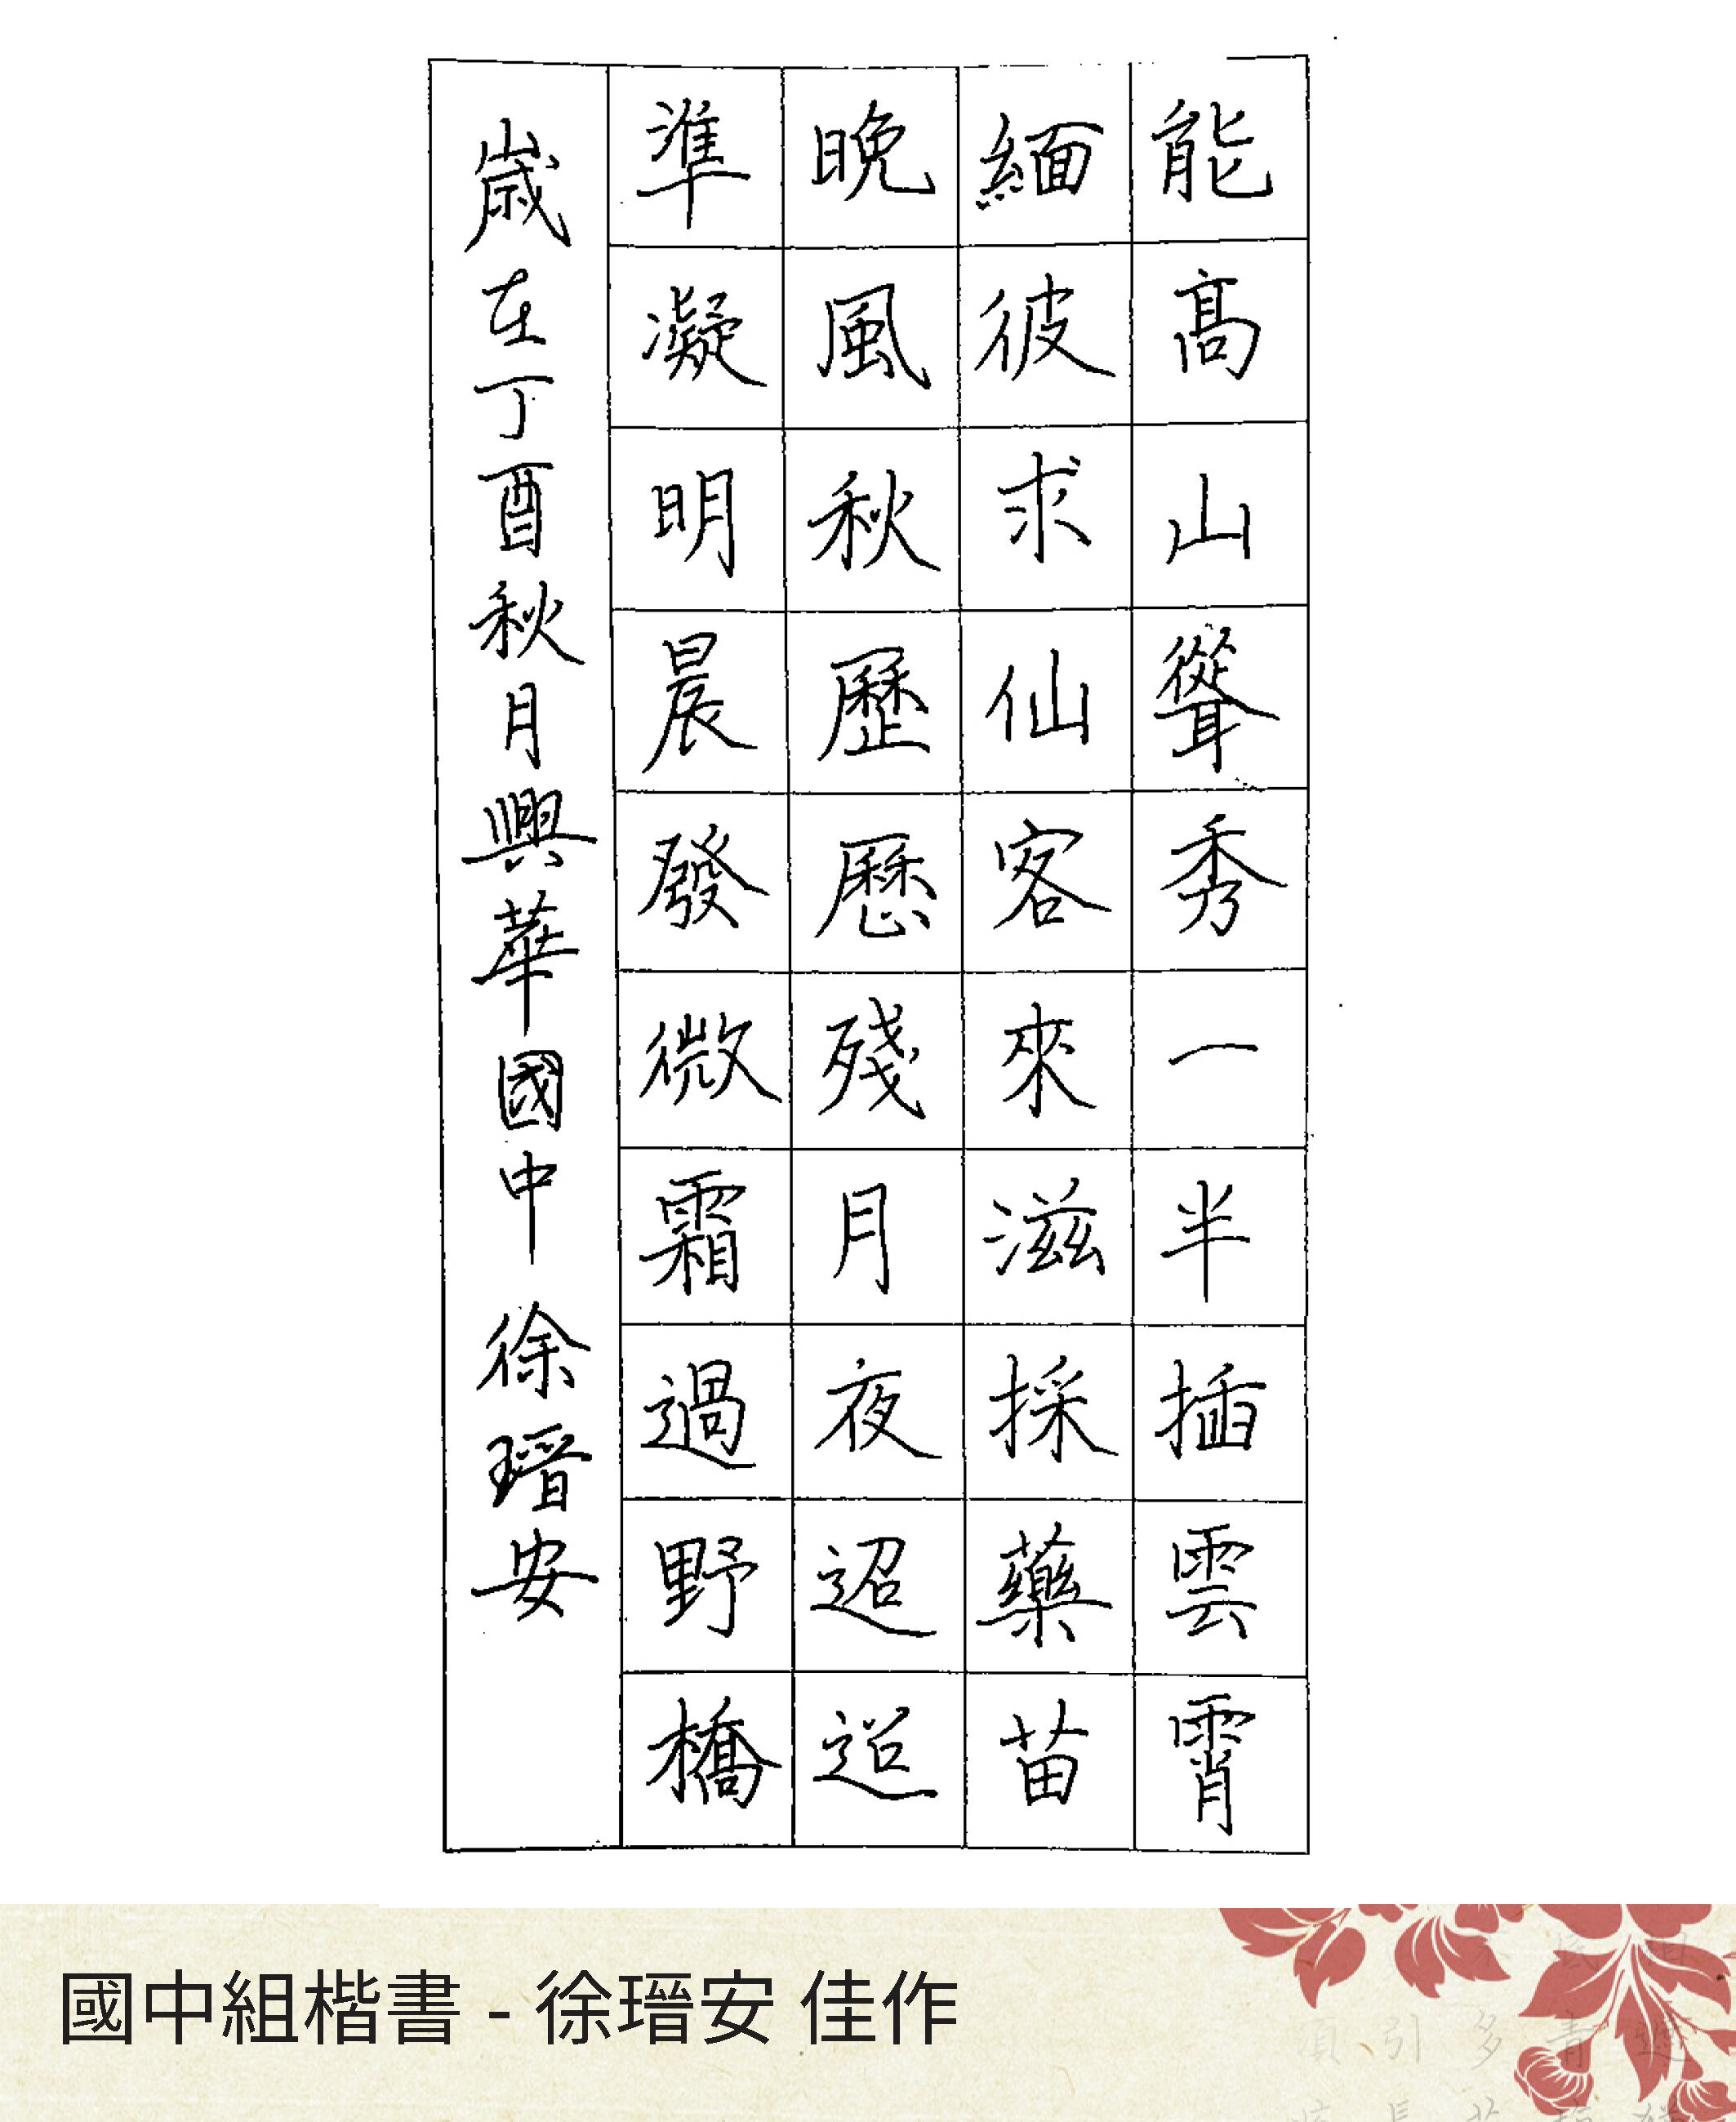 能高山聳秀一半插雲霄
緬彼求仙客來滋採藥苗
晚風秋歷懸殘月夜迢迢
準凝明晨發微霜過野橋
歲在丁酉秋月興華國中 徐瑨安
國中組楷書 - 徐瑨安 佳作